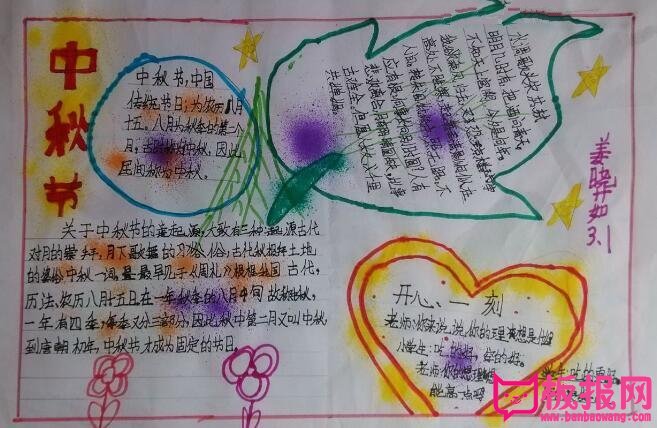 中秋节
中秋节,中国
传统节日;为农历八月
十五,八月为秋季的第二个
月;古时称为中秋,因此
民间称为中秋。
水调歌头 苏轼
明月几时有,把酒问青天。
不知天上宫阙,今夕是何年。
我欲乘风归去,又恐琼楼玉宇
高处不胜寒,起舞弄清影,何似在
人间。
应有恨,何事长向别时圆?人有
悲欢离合,月有阴晴圆缺,此事
古难全,但愿人长久,千里
共婵娟。
姜晓如
3.1
关于中秋节的起源,大致有三种:起源古代
对月的崇拜,月下歌舞的习俗,古代秋报拜土地
的遗俗 中秋一词,最早见于《周礼》根据我国古代,
历法,农历八月十五日在一年秋季的八月中旬 故称秋,
一年有四季,每季又分三部分,因此秋中第二月又叫中秋
到唐朝初年,中秋节才成为固定的节日。
开心一刻
老师:你来说说,你的理想是什
小学生:吃
老师:你的理想
能高一点吗
学生:吃的
板报网
www.banbaowang.com